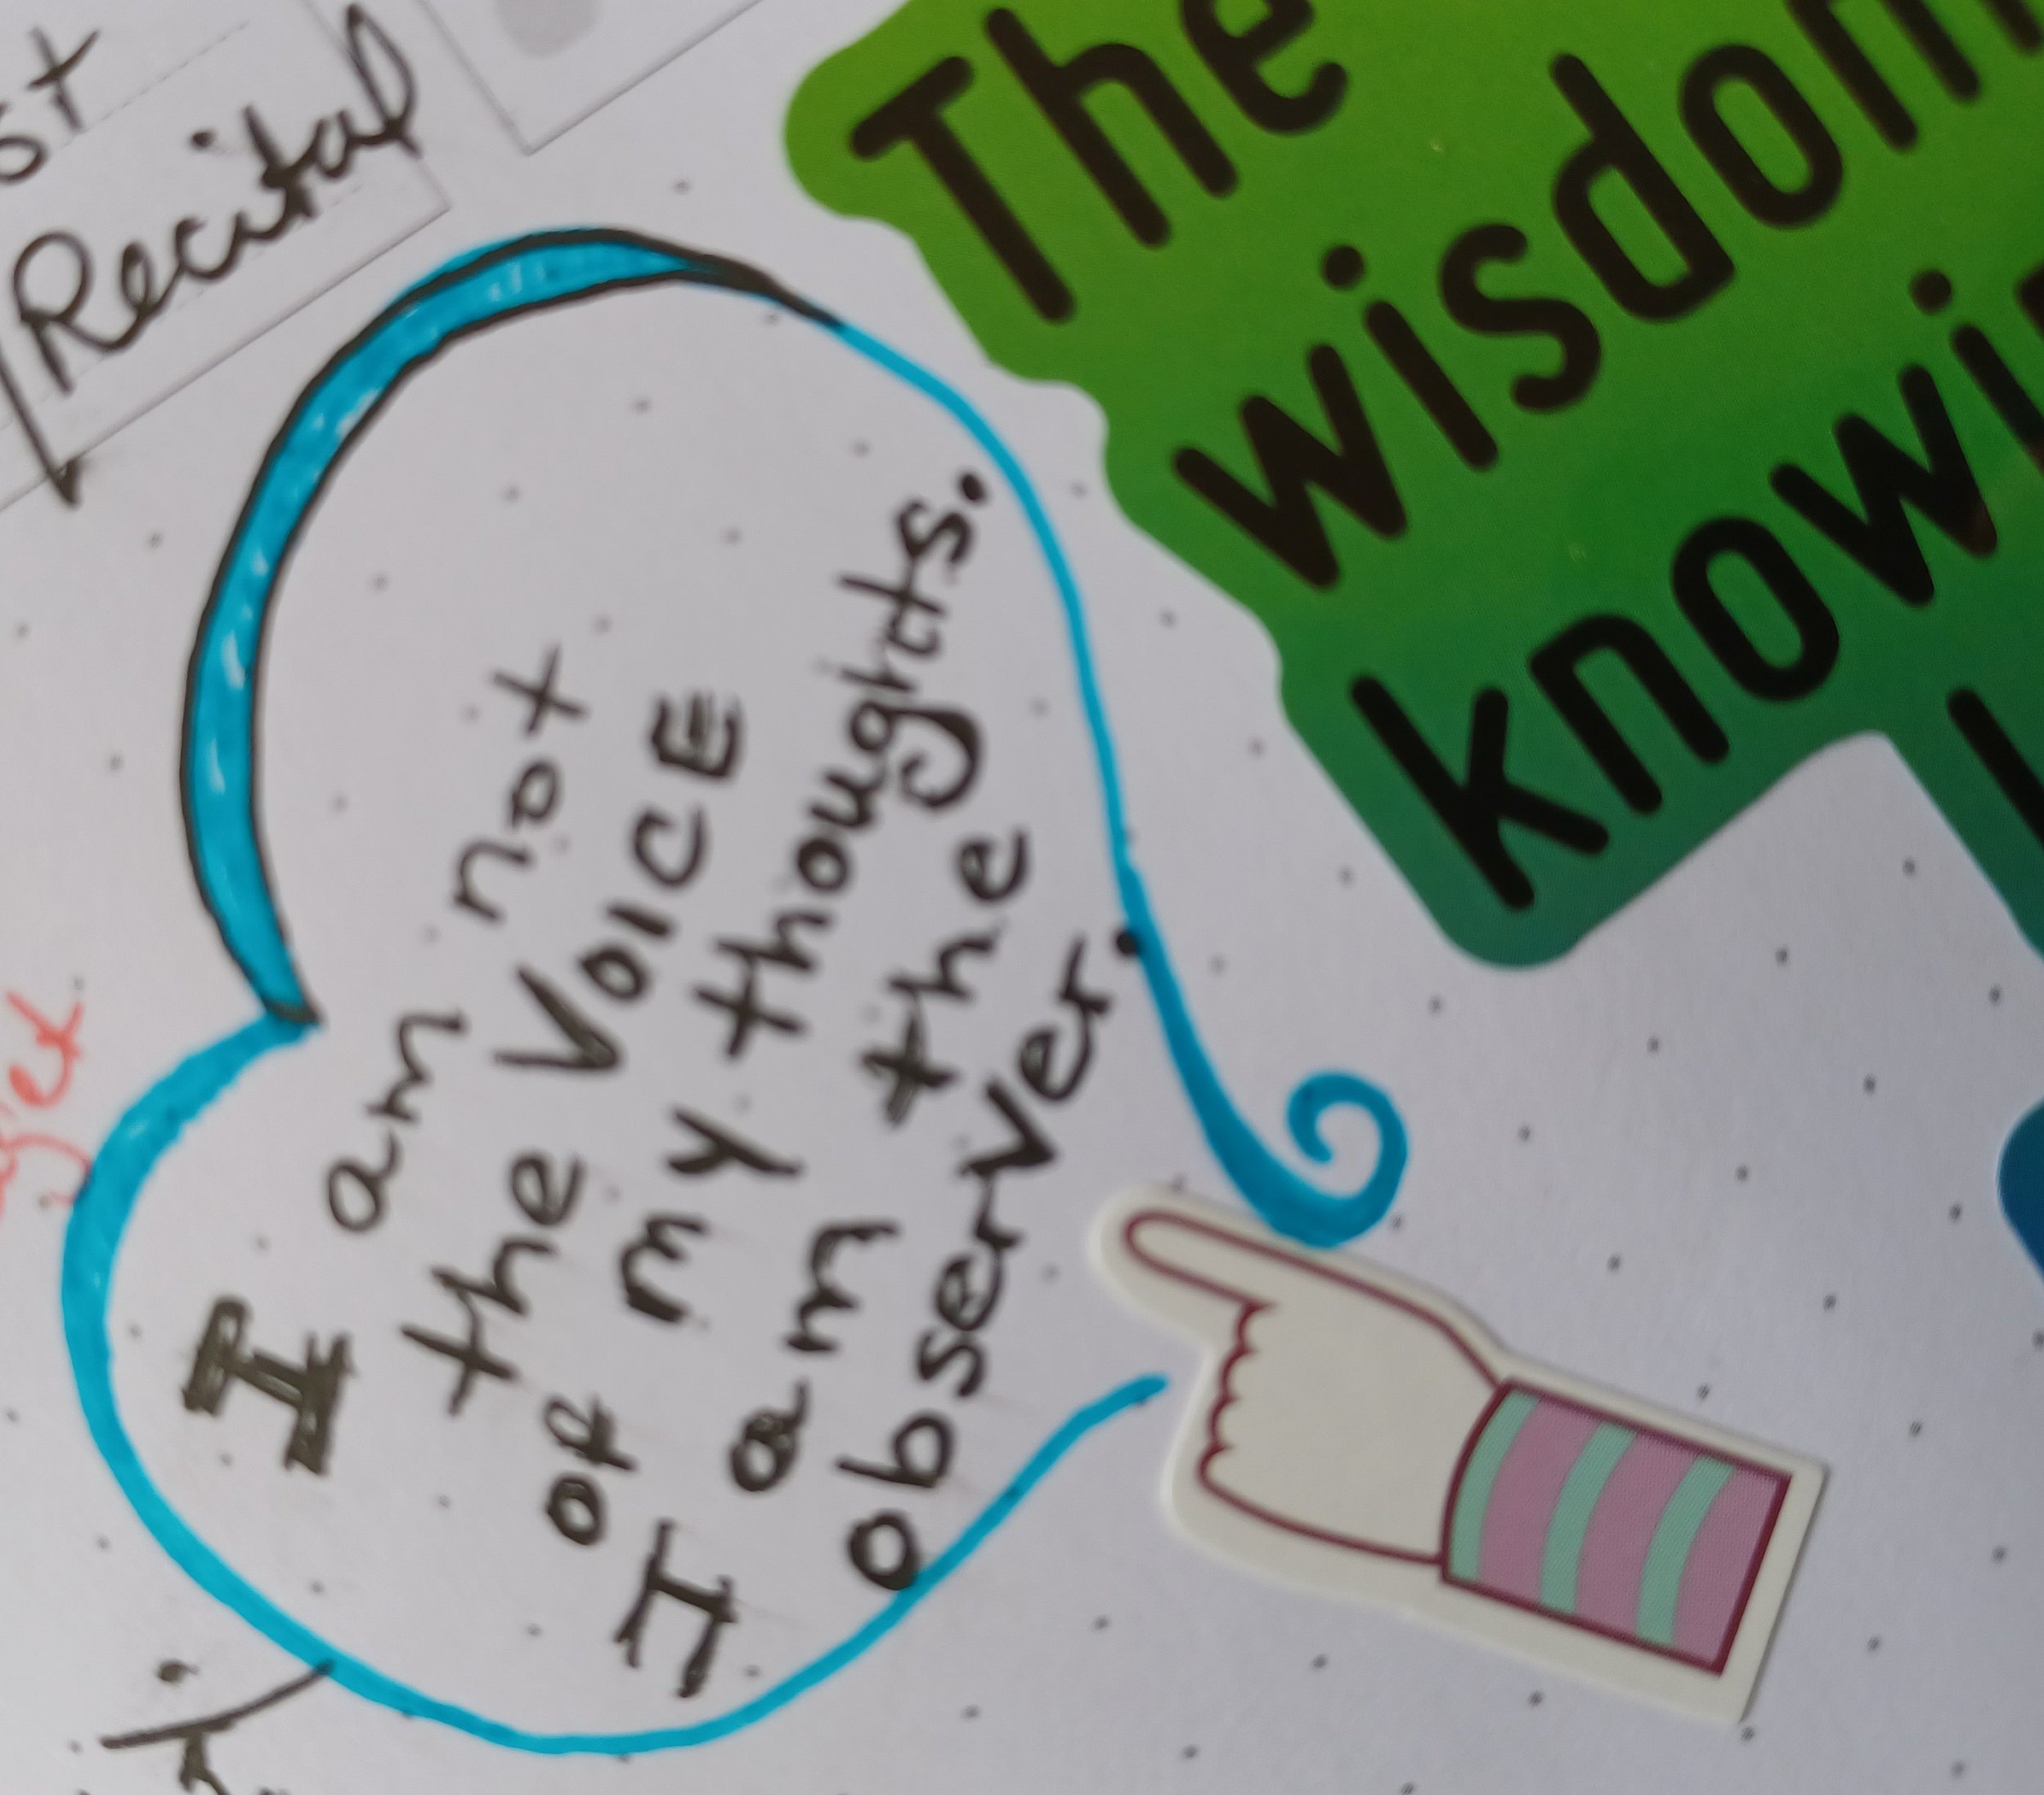 Recital
The
wisdom
I am not
the VOICE
of my thoughts.
I am the
observer.